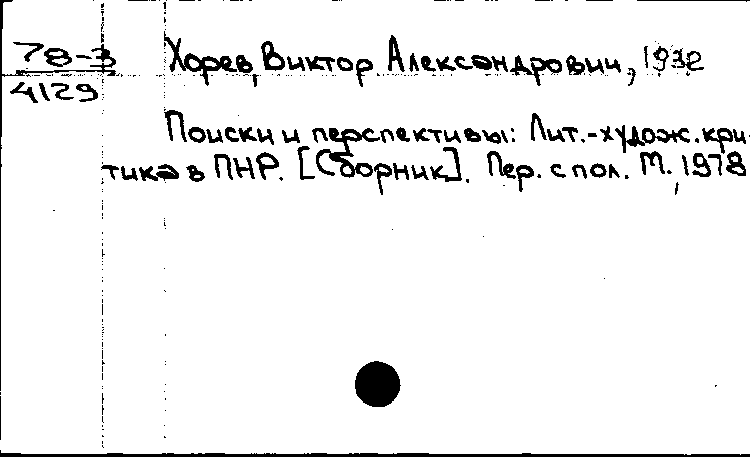 78-3 Хорев, Виктор Александрович, 1932
4129
Поиски и перспективы: Лит.-худож. кри-
тика в ПНР. [Сборник]. Пер. с пол. М., 1978